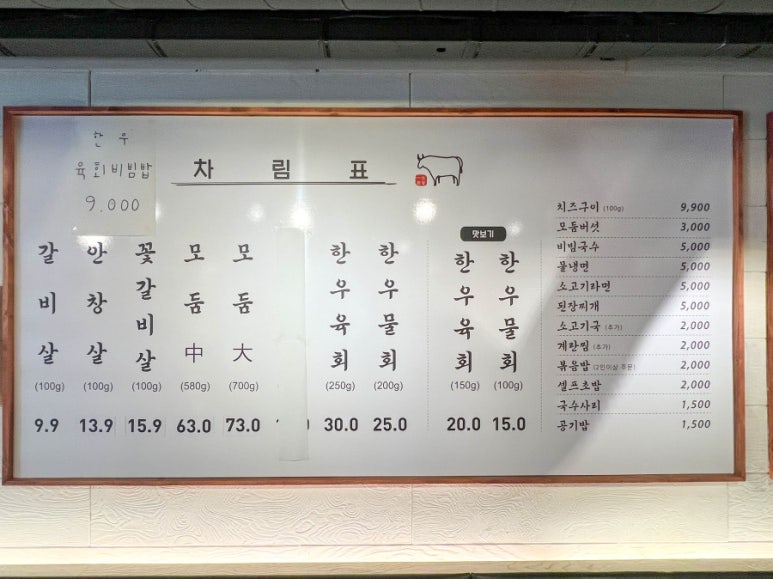 한우
육회비빔밥
9.000
차림표
갈비살 (100g) 9.9
안창살 (100g) 13.9
꽃갈비살 (100g) 15.9
모둠 中 (580g) 63.0
모둠 大 (700g) 73.0
한우육회 (250g) 30.0
한우물회 (200g) 25.0
맛보기
한우육회 (150g) 20.0
한우물회 (100g) 15.0
치즈구이 (100g) 9,900
모듬버섯 3,000
비빔국수 5,000
물냉면 5,000
소고기라면 5,000
된장찌개 5,000
소고기국 (추가) 2,000
계란찜 (추가) 2,000
볶음밥 (2인이상 주문) 2,000
셀프초밥 2,000
국수사리 1,500
공기밥 1,500